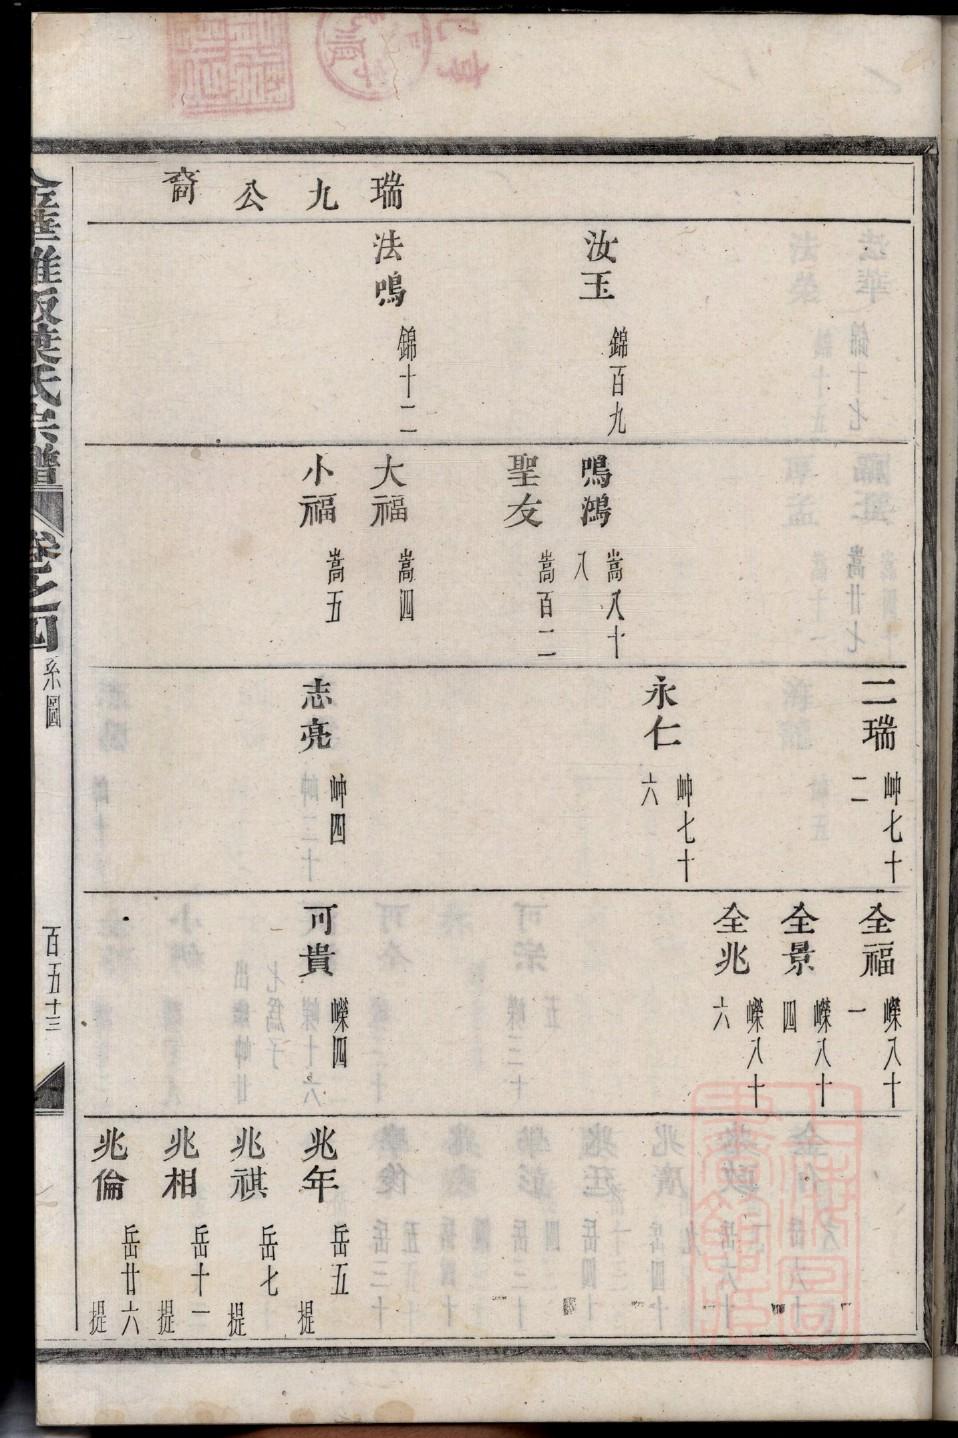 瑞九公裔
汝玉 錦百九
法鳴 錦十二
鳴鴻 嵩八十八
聖友 嵩百二
大福 嵩四
小福 嵩五
二瑞 岫七十二
永仁 岫七十六
志亮 岫四
全福 嶸八十一
全景 嶸八十四
全兆 嶸八十六
可貴 嶸四
兆年 岳五 提
兆祺 岳七 提
兆相 岳十一 提
兆倫 岳廿六 提
葉氏宗譜 卷之四 系圖 百五十三